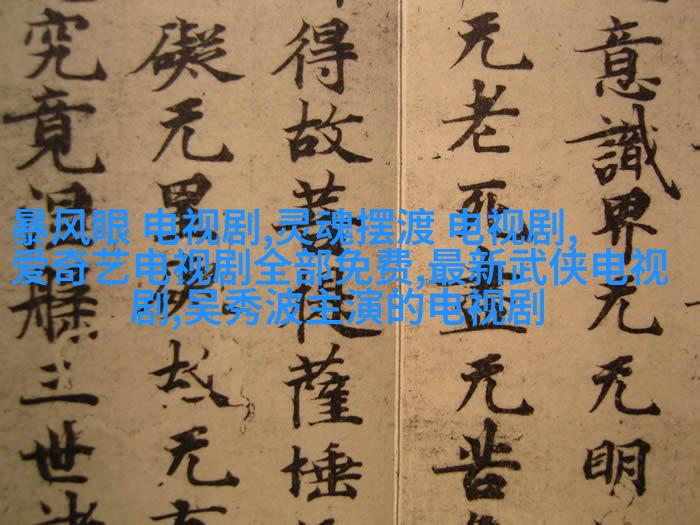 意識界无无明
无老死盡无苦
得故菩提薩埵
礙无罣礙故无
究竟涅槃三世諸
暴风眼 电视剧,灵魂摆渡 电视剧,
爱奇艺电视剧全部免费,最新武侠电视
剧,吴秀波主演的电视剧